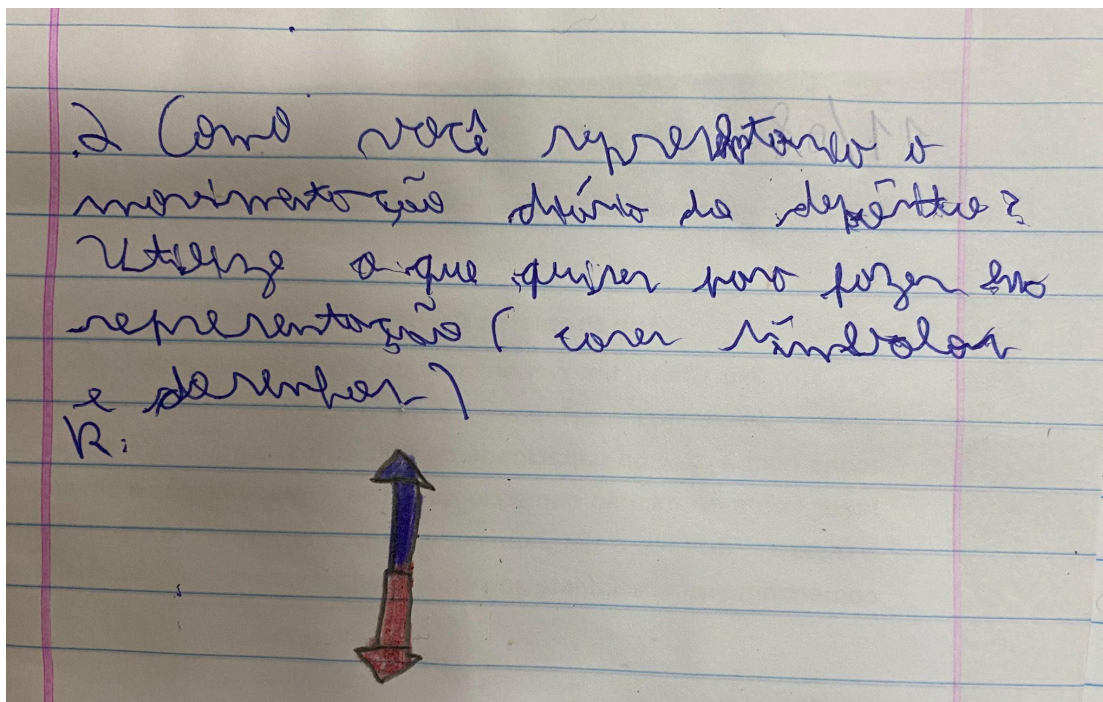 2 Como você representaria a
movimentação diária do depósito?
Utilize o que quiser para fazer sua
representação ( cores símbolos
e desenhos )
R: